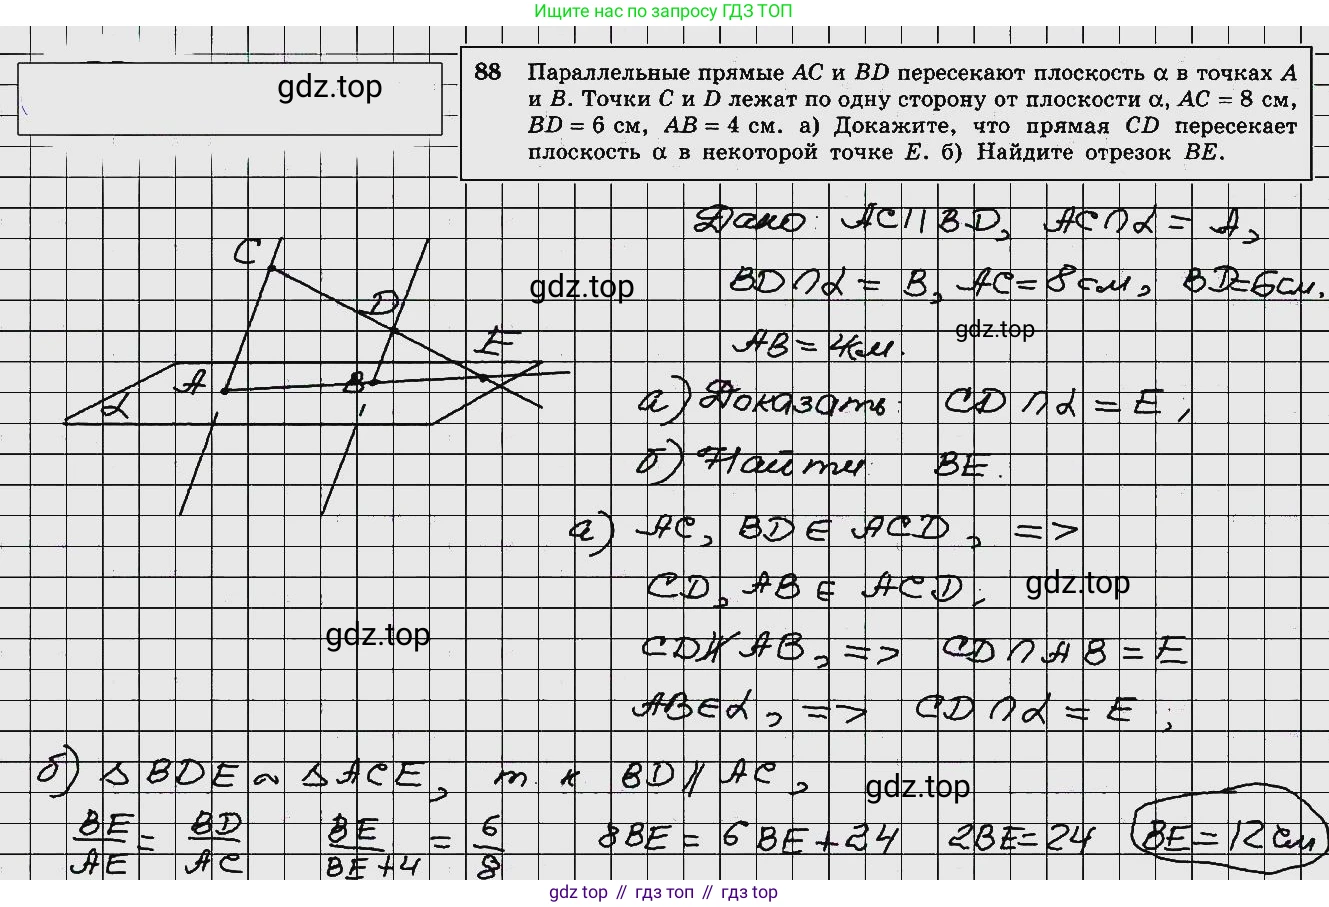 Ищите нас по запросу ГДЗ ТОП
gdz.top
88 Параллельные прямые AC и BD пересекают плоскость α в точках A
и B. Точки C и D лежат по одну сторону от плоскости α, AC = 8 см,
BD = 6 см, AB = 4 см. а) Докажите, что прямая CD пересекает
плоскость α в некоторой точке E. б) Найдите отрезок BE.
Дано: AC || BD, AC ∩ α = A,
BD ∩ α = B, AC = 8 см, BD = 6 см,
AB = 4 см.
gdz.top
gdz.top
C
D
E
A
B
α
а) Доказать: CD ∩ α = E,
б) Найти BE.
а) AC, BD ∈ ACD, =>
CD, AB ∈ ACD;
gdz.top
gdz.top
CD ∦ AB, => CD ∩ AB = E
AB ∈ α, => CD ∩ α = E;
б) Δ BDE ~ Δ ACE, т. к BD || AC,
gdz.top
BE/AE = BD/AC BE/BE+4 = 6/8 8BE = 6BE + 24 2BE = 24 BE = 12 см
gdz.top // гдз топ // гдз top